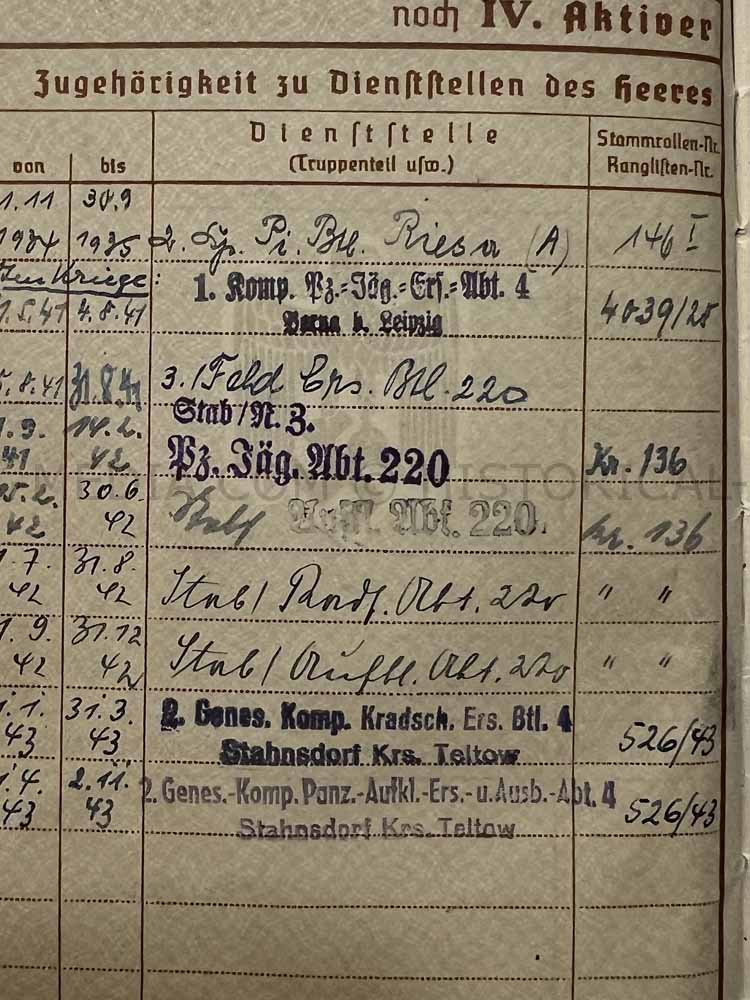 noch IV. Aktiver
Zugehörigkeit zu Dienststellen des Heeres
von bis Dienststelle (Truppenteil usw.) Stammrollen-Nr. Ranglisten-Nr.
1.11 30.9
1934 1935 2. Kp. Pi. Btl. Riesa (A) 146 I
Kriege:
1.5.41 4.8.41 1. Komp. Pz.=Jäg.=Ers.=Abt. 4 4039/28
Borna b. Leipzig
5.8.41 31.8.41 3./Feld Ers. Btl. 220
1.9. 14.2. Stab/N.Z.
41 42 Pz. Jäg. Abt. 220 Kr. 136
15.2. 30.6.
42 42 Stab Abt. 220. Kr. 136
1.7. 31.8.
42 42 Stab/ Radf. Abt. 220 " "
1.9. 31.12
42 42 Stab/ Aufkl. Abt. 220 " "
1.1. 31.3. 2. Genes. Komp. Kradsch. Ers. Btl. 4
43 43 Stahnsdorf Krs. Teltow 526/43
1.4. 2.11. 2. Genes.-Komp. Panz.-Aufkl.-Ers.-u. Ausb.-Abt. 4
43 43 Stahnsdorf Krs. Teltow 526/43